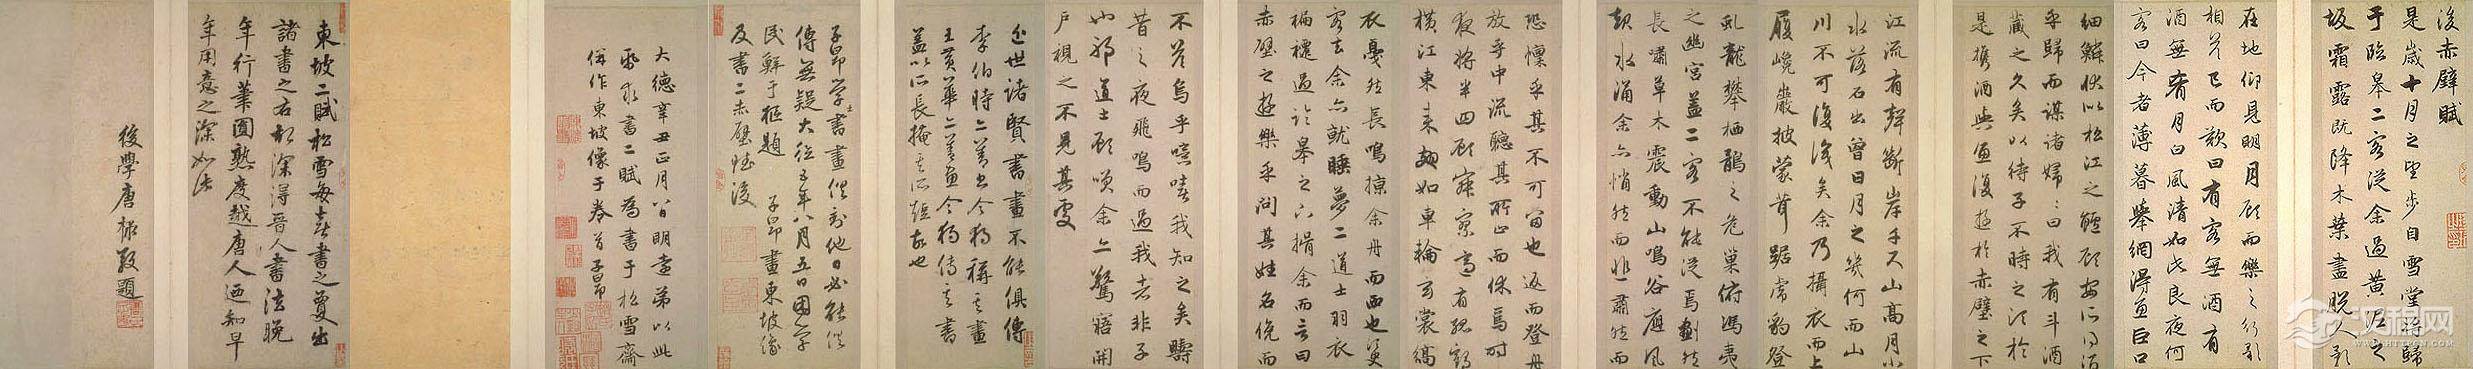 後赤壁賦
是歲十月之望步自雪堂將歸
于臨皋二客從余過黃泥之
坂霜露既降木葉盡脫人影
在地仰見明月顧而樂之行歌
相答已而歎曰有客無酒有
酒無肴月白風清如此良夜何
客曰今者薄暮舉網得魚巨口
細鱗狀似松江之鱸顧安所得酒
乎歸而謀諸婦婦曰我有斗酒
藏之久矣以待子不時之須於
是攜酒與魚復遊於赤壁之下
江流有聲斷岸千尺山高月小
水落石出曾日月之幾何而山
川不可復識矣余乃攝衣而上
履巉巖披蒙茸踞虎豹登
虬龍攀栖鶻之危巢俯馮夷
之幽宮蓋二客不能從焉劃然
長嘯草木震動山鳴谷應風
起水涌余亦悄然而悲肅然而
恐懍乎其不可留也返而登舟
放乎中流聽其所止而休焉時
夜將半四顧寂寥適有孤鶴
橫江東來翅如車輪玄裳縞
衣戛然長鳴掠余舟而西也須臾
客去余亦就睡夢二道士羽衣
蹁躚過臨皋之下揖余而言曰
赤壁之遊樂乎問其姓名俛而
不答烏乎噫嘻我知之矣疇
昔之夜飛鳴而過我者非子
也邪道士顧笑余亦驚寤開
戶視之不見其處
近世諸賢書畫不能俱傳
李伯時亦善書今獨稱其畫
王黃華亦善畫今獨傳其書
蓋以所長掩其所短故也
子昂學士書畫俱到他日必能俱
傳無疑大德五年八月五日困學
民鮮于樞題 子昂畫東坡像
及書二赤壁賦後
大德辛丑正月八日明遠弟以此
紙求書二賦為書于松雪齋
併作東坡像于卷首子昂
東坡二賦松雪每喜書之夏出
諸書之右都深得晉人書法晚
年行筆圓熟度越唐人迺知早
年用意之深如此
後學唐棣敬題
汉程网
WWW.HTTPCN.COM